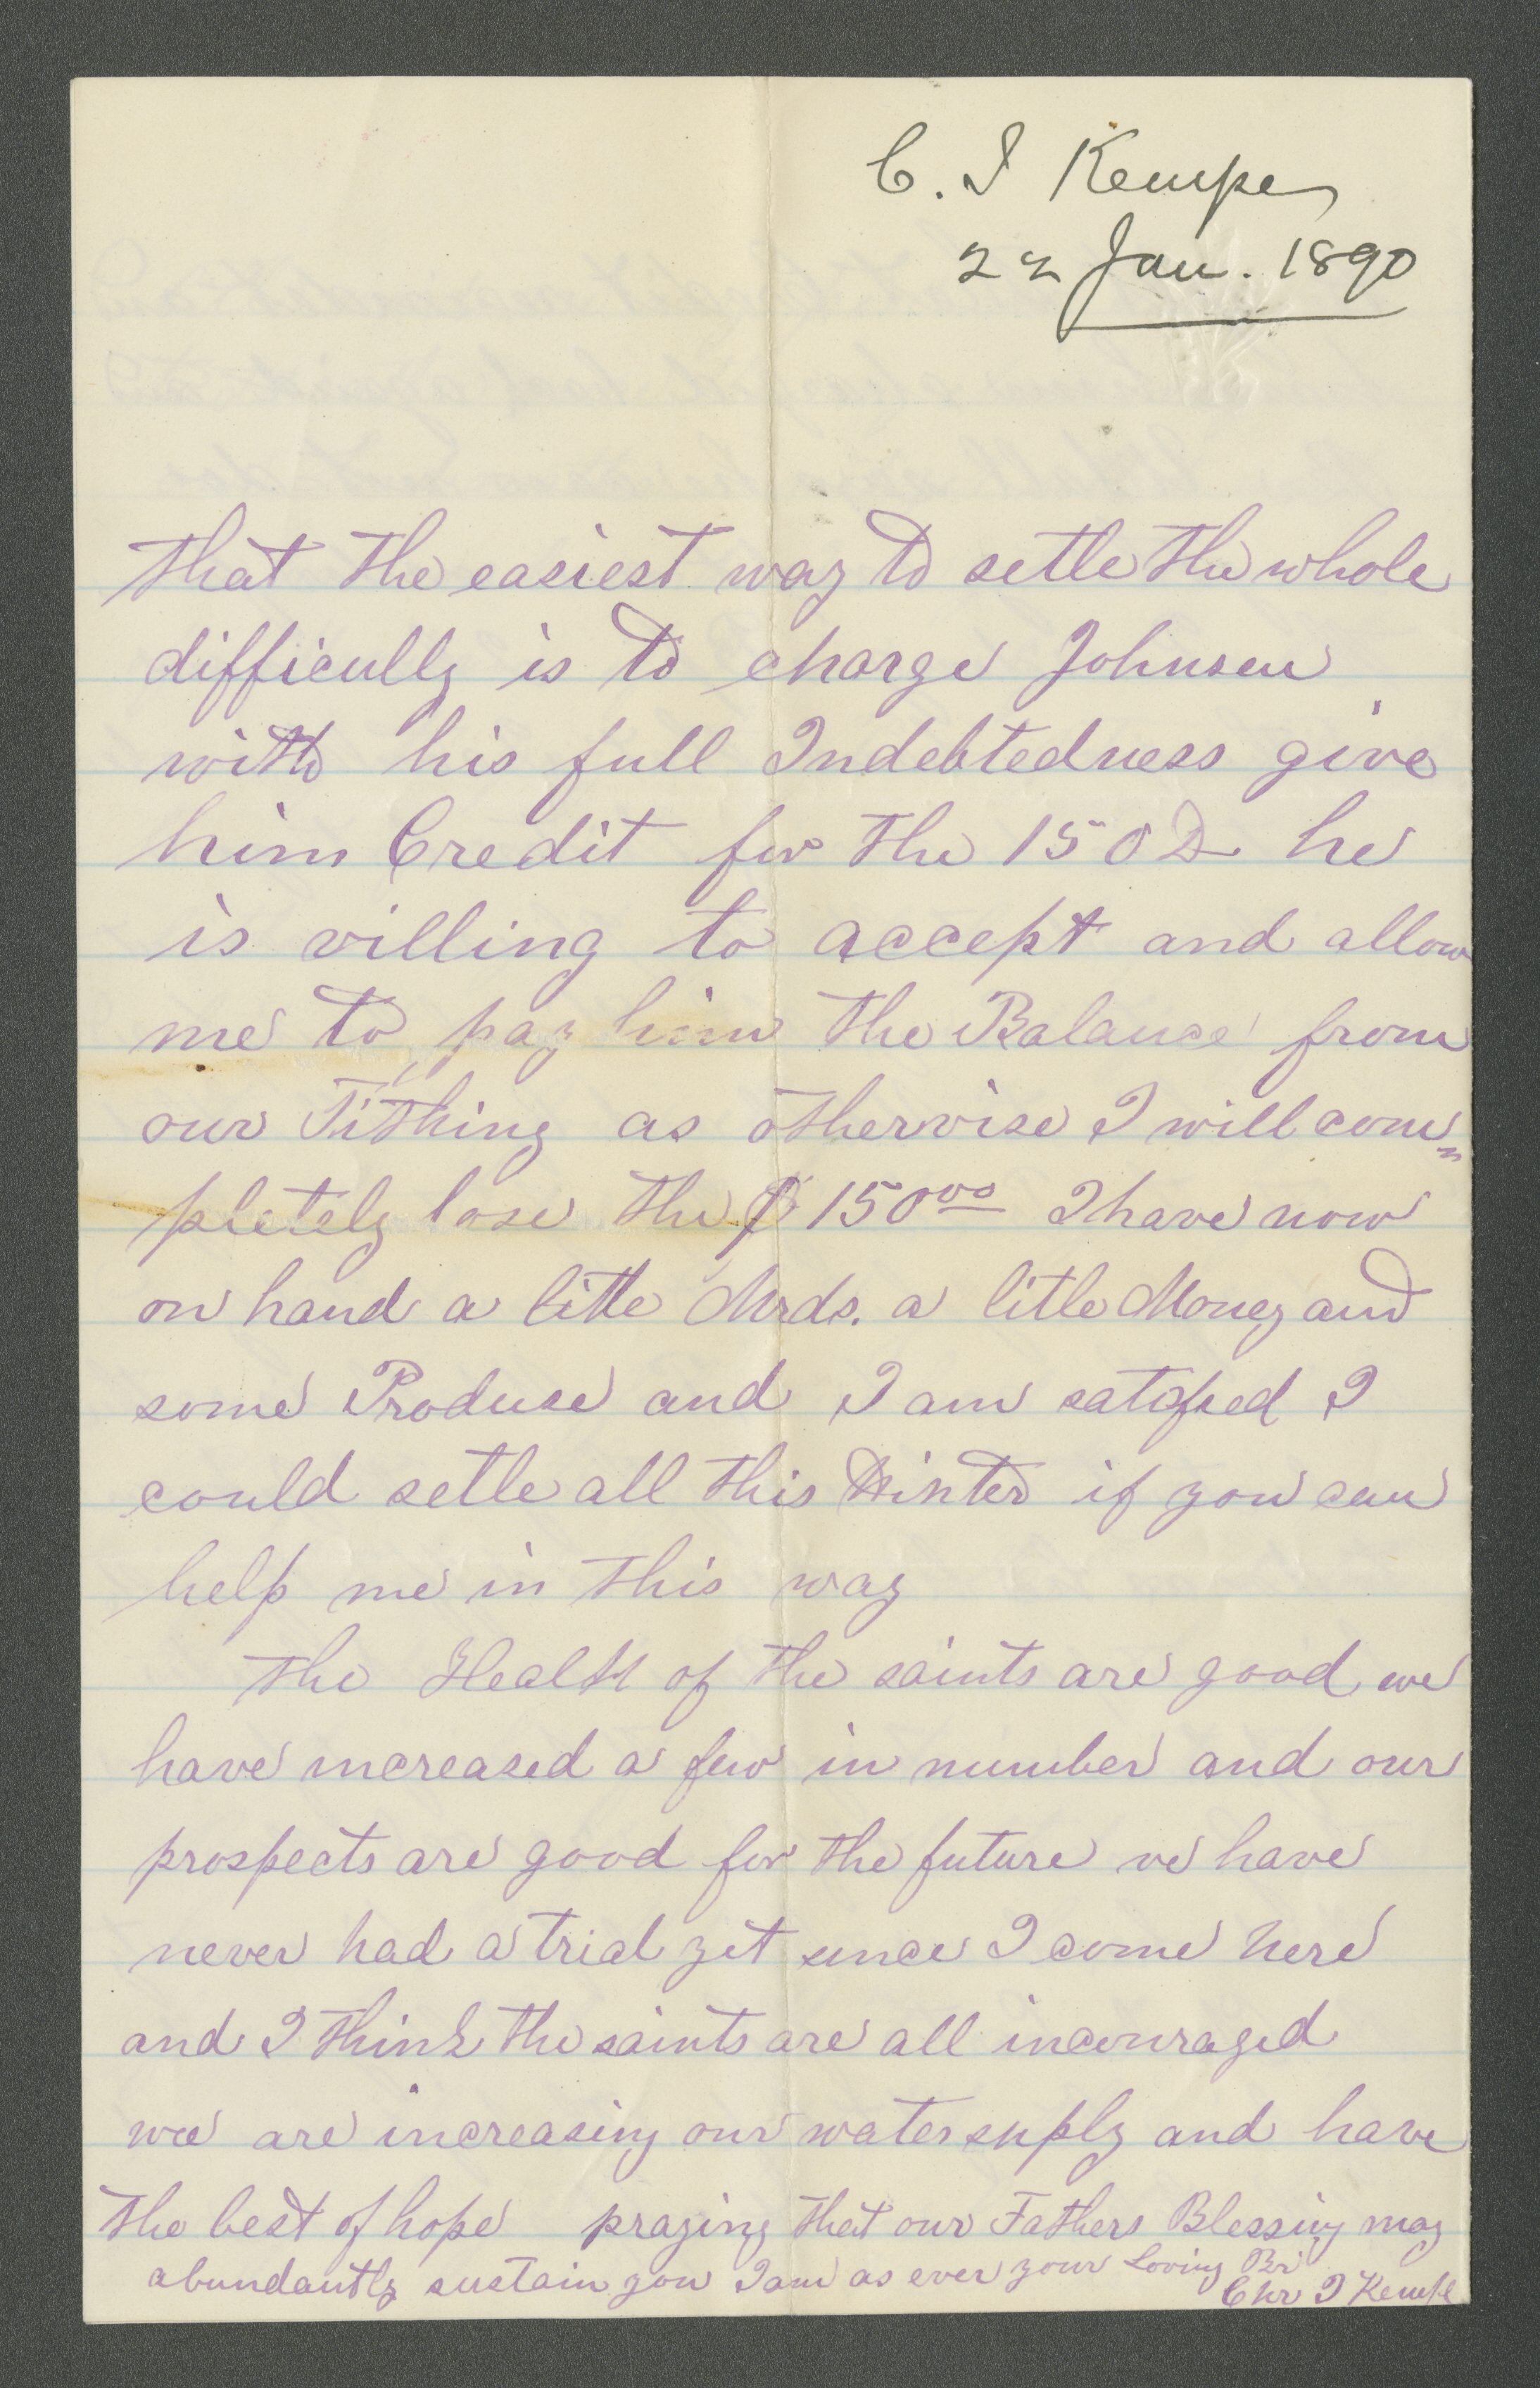 C. I Kempe
22 Jan. 1890
that the easiest way to setle the whole
difficully is to charge Johnsen
with his full Indebtedness give
him Credit for the 150 D he
is villing to accept and allow
me to pay him the Balance from
our Tithing as othervise I will com=
pletely lose the $ 150 00 I have now
on hand a litte Mrds. a litle Money and
some Produse and I am satisfied I
could setle all this Winter if you can
help me in this way
The Health of the saints are good we
have increased a few in number and our
prospects are good for the future ve have
never had a trial yet since I come here
and I think the saints are all incouraged
wee are increasing our water supply and have
the best of hope praying that our Fathers Blessing may
abundantly sustain you I am as ever your Loving Br
Chr I Kempe